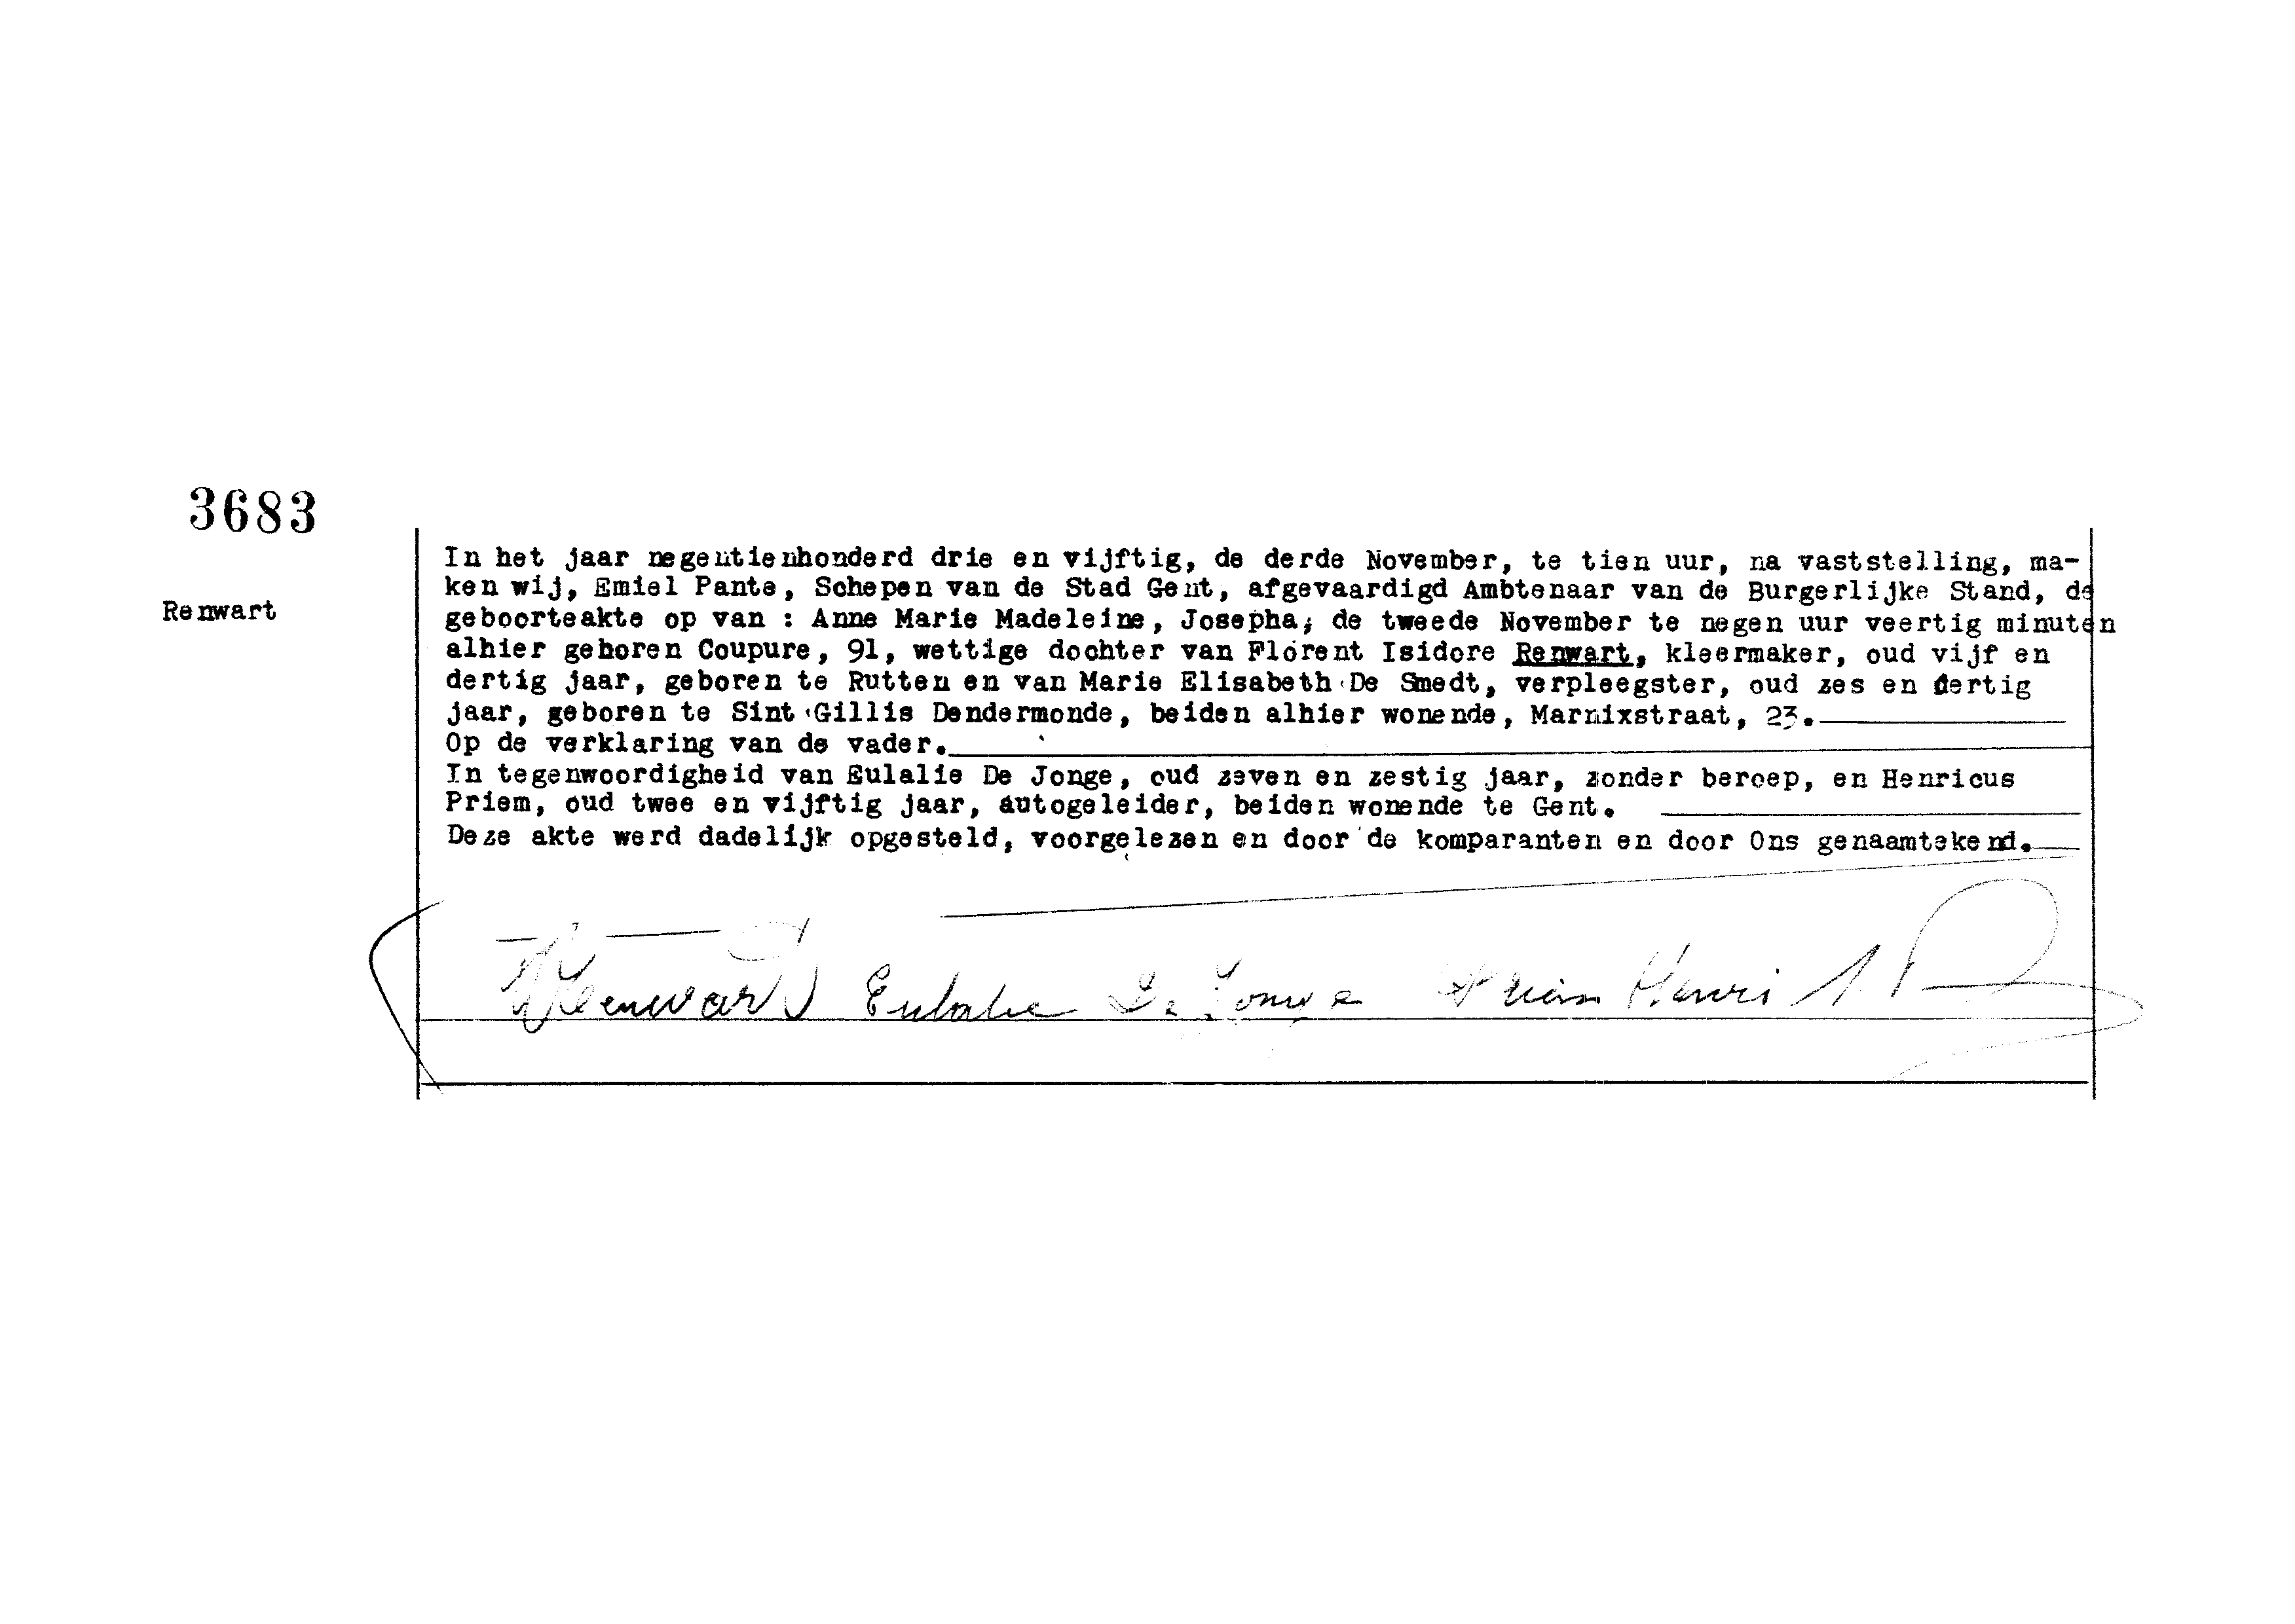 3683
Renwart
In het jaar negentienhonderd drie en vijftig, de derde November, te tien uur, na vaststelling, ma-
ken wij, Emiel Pante, Schepen van de Stad Gent, afgevaardigd Ambtenaar van de Burgerlijke Stand, de
geboorteakte op van : Anne Marie Madeleine, Josepha, de tweede November te negen uur veertig minuten
alhier geboren Coupure, 91, wettige dochter van Florent Isidore Renwart, kleermaker, oud vijf en
dertig jaar, geboren te Rutten en van Marie Elisabeth De Smedt, verpleegster, oud zes en dertig
jaar, geboren te Sint Gillis Dendermonde, beiden alhier wonende, Marnixstraat, 23.
Op de verklaring van de vader.
In tegenwoordigheid van Eulalie De Jonge, oud zeven en zestig jaar, zonder beroep, en Henricus
Priem, oud twee en vijftig jaar, autogeleider, beiden wonende te Gent.
Deze akte werd dadelijk opgesteld, voorgelezen en door de komparanten en door Ons genaamtekend.
Renwart Eulalie De Jonge Priem Henri